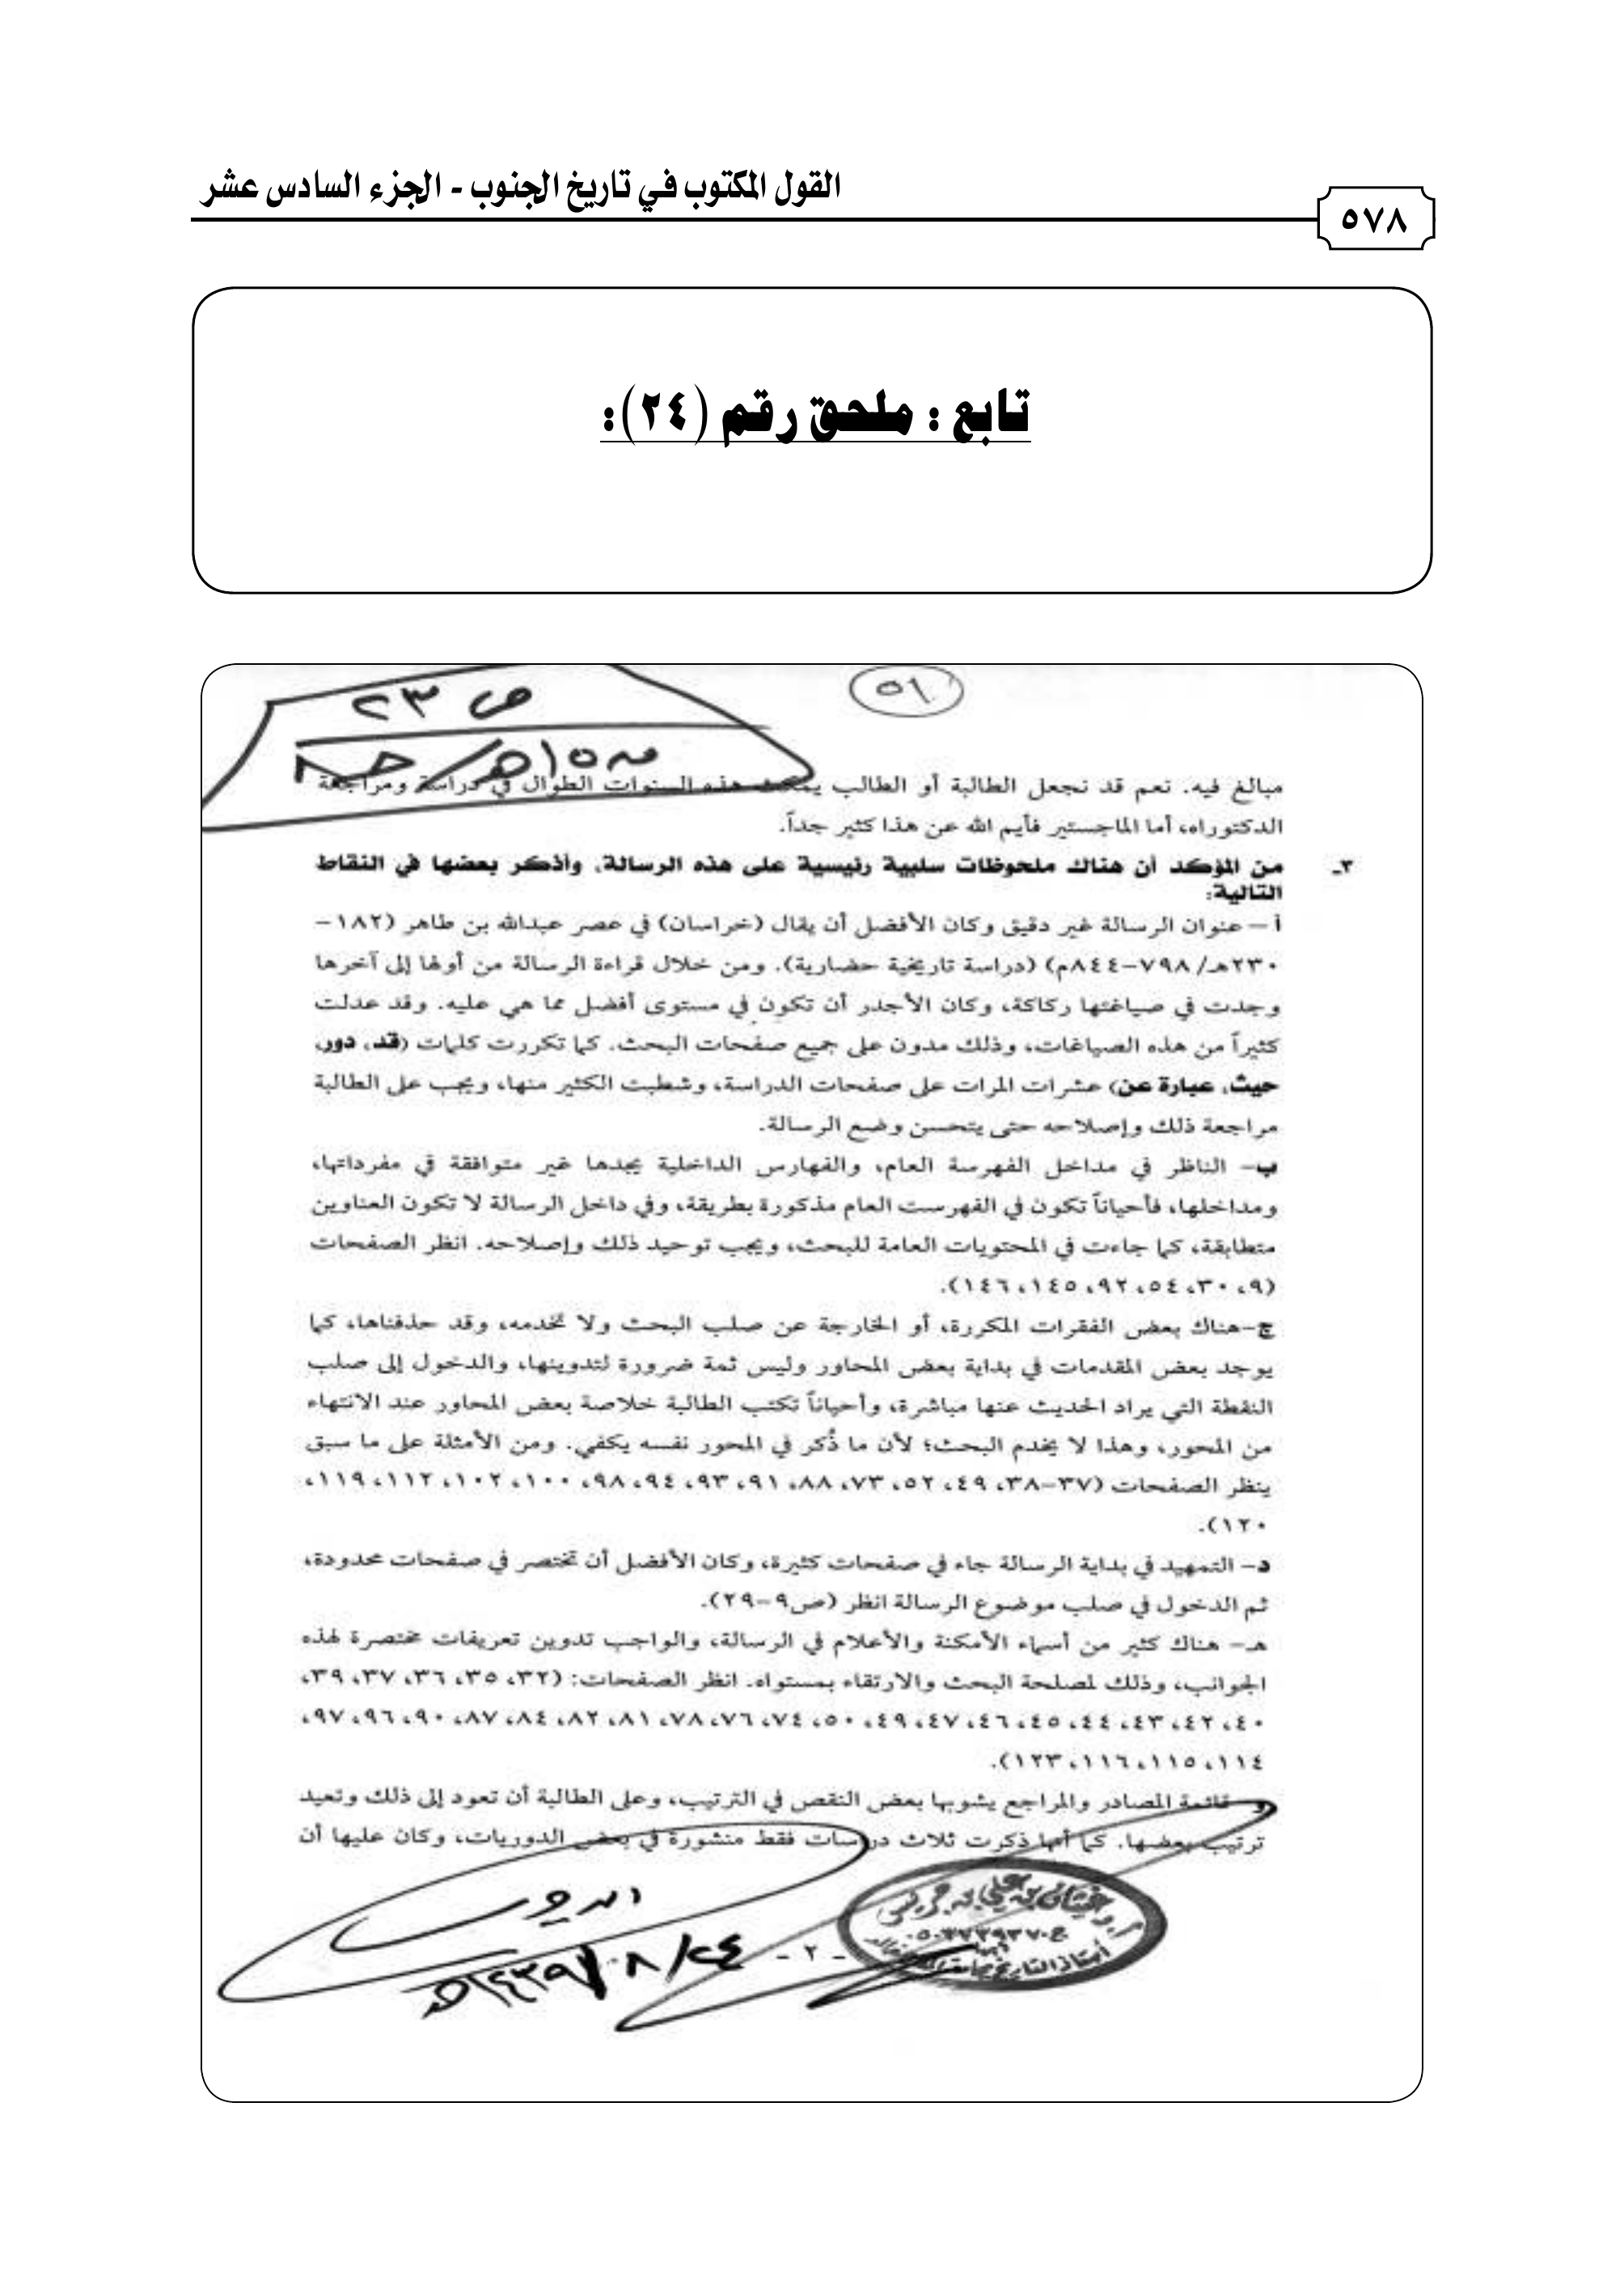 القول المكتوب في تاريخ الجنوب - الجزء السادس عشر
٥٧٨
تابع : ملحق رقم (٢٤):
٥٦
ص ٢٣
مبالغ فيه. نعم قد نجعل الطالبة أو الطالب يمكث هذه السنوات الطوال في دراسة ومراجعة
الدكتوراه، أما الماجستير فأيم الله عن هذا كثير جداً.
٣- من المؤكد أن هناك ملحوظات سلبية رئيسية على هذه الرسالة، وأذكر بعضها في النقاط
التالية:
أ – عنوان الرسالة غير دقيق وكان الأفضل أن يقال (خراسان) في عصر عبدالله بن طاهر (١٨٢–
٢٣٠هـ/ ٧٩٨–٨٤٤م) (دراسة تاريخية حضارية). ومن خلال قراءة الرسالة من أولها إلى آخرها
وجدت في صياغتها ركاكة، وكان الأجدر أن تكون في مستوى أفضل مما هي عليه. وقد عدلت
كثيراً من هذه الصياغات، وذلك مدون على جميع صفحات البحث. كما تكررت كلمات (قد، دور،
حيث، عبارة عن) عشرات المرات على صفحات الدراسة، وشطبت الكثير منها، ويجب على الطالبة
مراجعة ذلك وإصلاحه حتى يتحسن وضع الرسالة.
ب– الناظر في مداخل الفهرسة العام، والفهارس الداخلية يجدها غير متوافقة في مفرداتها،
ومداخلها، فأحياناً تكون في الفهرست العام مذكورة بطريقة، وفي داخل الرسالة لا تكون العناوين
متطابقة، كما جاءت في المحتويات العامة للبحث، ويجب توحيد ذلك وإصلاحه. انظر الصفحات
(٩، ٣٠، ٥٤، ٩٢، ١٤٥، ١٤٦).
ج–هناك بعض الفقرات المكررة، أو الخارجة عن صلب البحث ولا تخدمه، وقد حذفناها، كما
يوجد بعض المقدمات في بداية بعض المحاور وليس ثمة ضرورة لتدوينها، والدخول إلى صلب
النقطة التي يراد الحديث عنها مباشرة، وأحياناً تكتب الطالبة خلاصة بعض المحاور عند الانتهاء
من المحور، وهذا لا يخدم البحث؛ لأن ما ذُكر في المحور نفسه يكفي. ومن الأمثلة على ما سبق
ينظر الصفحات (٣٧–٣٨، ٤٩، ٥٢، ٧٣، ٨٨، ٩١، ٩٣، ٩٤، ٩٨، ١٠٠، ١٠٢، ١١٢، ١١٩،
١٢٠).
د– التمهيد في بداية الرسالة جاء في صفحات كثيرة، وكان الأفضل أن تختصر في صفحات محدودة،
ثم الدخول في صلب موضوع الرسالة انظر (ص٩–٢٩).
هـ– هناك كثير من أسماء الأمكنة والأعلام في الرسالة، والواجب تدوين تعريفات مختصرة لهذه
الجوانب، وذلك لمصلحة البحث والارتقاء بمستواه. انظر الصفحات: (٣٢، ٣٥، ٣٦، ٣٧، ٣٩،
٤٠، ٤٢، ٤٣، ٤٤، ٤٥، ٤٦، ٤٧، ٤٩، ٥٠، ٧٤، ٧٦، ٧٨، ٨١، ٨٢، ٨٤، ٨٧، ٩٠، ٩٦، ٩٧،
١١٤، ١١٥، ١١٦، ١٢٣).
و– قائمة المصادر والمراجع يشوبها بعض النقص في الترتيب، وعلى الطالبة أن تعود إلى ذلك وتعيد
ترتيب بعضها. كما أنها ذكرت ثلاث دراسات فقط منشورة في بعض الدوريات، وكان عليها أن
- ٢ -
٢٤/٠٨/١٤٣٩هـ